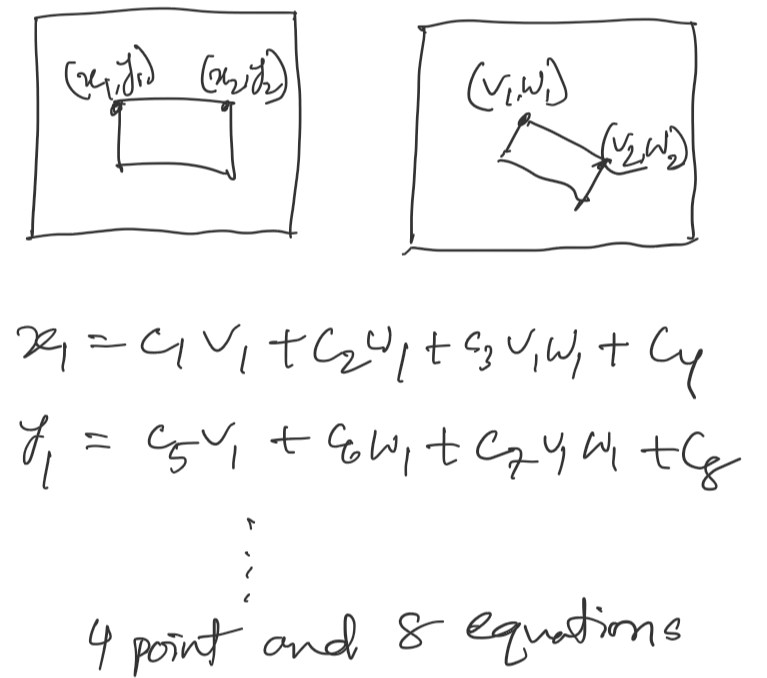 (x₁,y₁) (x₂,y₂)
(v₁,w₁)
(v₂,w₂)
x₁ = c₁ v₁ + c₂ w₁ + c₃ v₁ w₁ + c₄
y₁ = c₅ v₁ + c₆ w₁ + c₇ v₁ w₁ + c₈
4 point and 8 equations